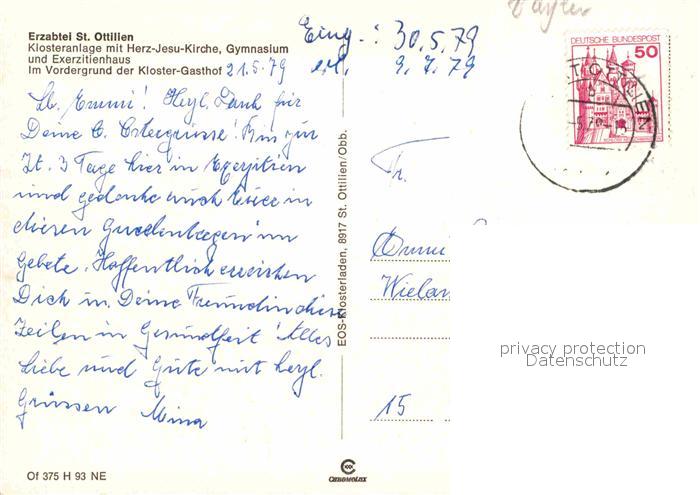 Erzabtei St. Ottilien
Klosteranlage mit Herz-Jesu-Kirche, Gymnasium
und Exerzitienhaus
Im Vordergrund der Kloster-Gasthof 21.5.79
Eing.: 30.5.79
erl. 9.7.79
Lb. Emmi! Herzl. Dank für
Deine lb. Ostergrüsse! Bin zur
Zt. 3 Tage hier in Exerzitien
und gedenke auch Euer in
diesen Gnadentagen im
Gebete. Hoffentlich erreichen
Dich u. Deine Freundin diese
Zeilen in Gesundheit! Alles
Liebe und Gute mit herzl.
Grüssen Mina
Of 375 H 93 NE
EOS-Klosterladen, 8917 St. Ottilien/Obb.
CHROMOLUX
DEUTSCHE BUNDESPOST
50
Fr.
Emmi
Wielan
15
privacy protection
Datenschutz